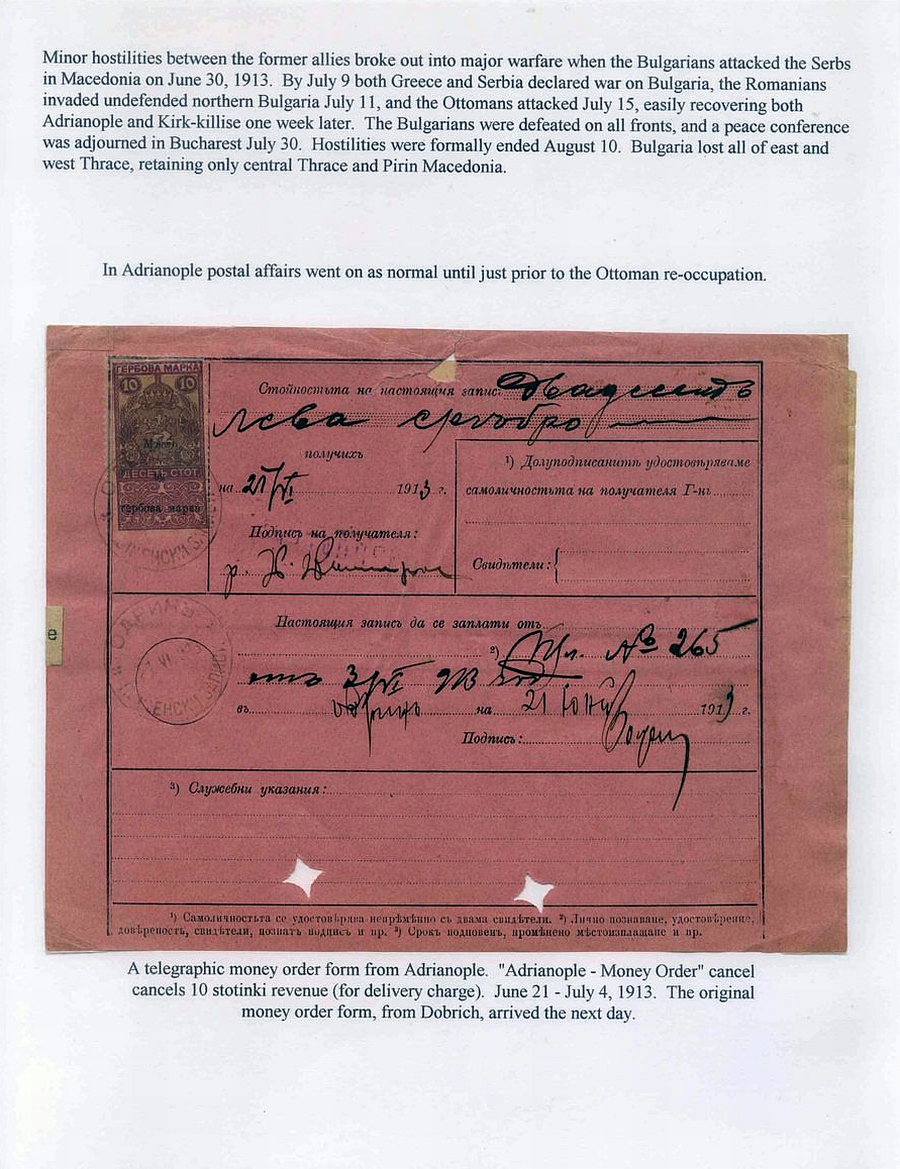 Minor hostilities between the former allies broke out into major warfare when the Bulgarians attacked the Serbs
in Macedonia on June 30, 1913.  By July 9 both Greece and Serbia declared war on Bulgaria, the Romanians
invaded undefended northern Bulgaria July 11, and the Ottomans attacked July 15, easily recovering both
Adrianople and Kirk-killise one week later.  The Bulgarians were defeated on all fronts, and a peace conference
was adjourned in Bucharest July 30.  Hostilities were formally ended August 10.  Bulgaria lost all of east and
west Thrace, retaining only central Thrace and Pirin Macedonia.
In Adrianople postal affairs went on as normal until just prior to the Ottoman re-occupation.
ГЕРБОВА МАРКА
10 10
ДЕСЕТЬ СТОТ
гербова марка
Стойностьта на настоящия запис: Двадесеть
Лева сребро
получихъ
на 21/VI 1913 г.
Подпись на получателя:
¹) Долуподписанитѣ удостовѣряваме
самоличностьта на получателя Г-нъ
Свидѣтели:
Настоящия запись да се заплати отъ
²) № 265
отъ 3/VI 913
въ Одринъ на 21 Юний 1913 г.
Подпись:
³) Служебни указания:
¹) Самоличностьта се удостовѣрява непрѣмѣнно съ двама свидѣтели. ²) Лично познаване, удостовѣрение,
довѣреность, свидѣтели, познать подпись и пр. ³) Срокъ подновенъ, промѣнено мѣстоизплащане и пр.
e
A telegraphic money order form from Adrianople.  "Adrianople - Money Order" cancel
cancels 10 stotinki revenue (for delivery charge).  June 21 - July 4, 1913.  The original
money order form, from Dobrich, arrived the next day.